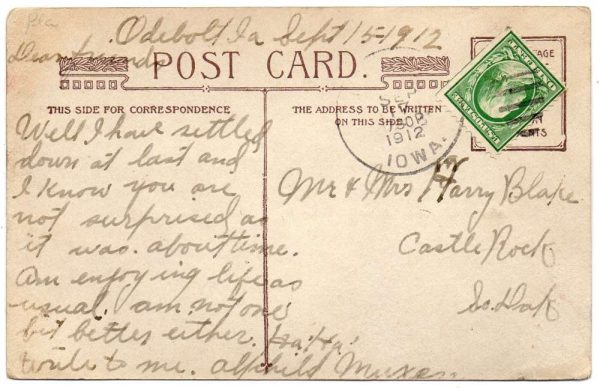 Odebolt, Ia Sept 15-1912
Dear friends
POST CARD.
THIS SIDE FOR CORRESPONDENCE
THE ADDRESS TO BE WRITTEN
ON THIS SIDE.
Well I have settled
down at last and
I know you are
not surprised as
it was about time.
am enjoying life as
usual. am not one
bit better either. Ha! Ha!
write to me. Alphild
Mr & Mrs Harry Blake
Castle Rock
So. Dak
SEP
1912
IOWA.